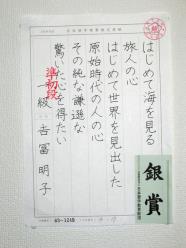 はじめて海を見る
旅人の心
はじめて世界を見出した
原始時代の人の心
その純な謙遜な
驚いた心を得たい
準初段
一級 吉冨明子
銀賞